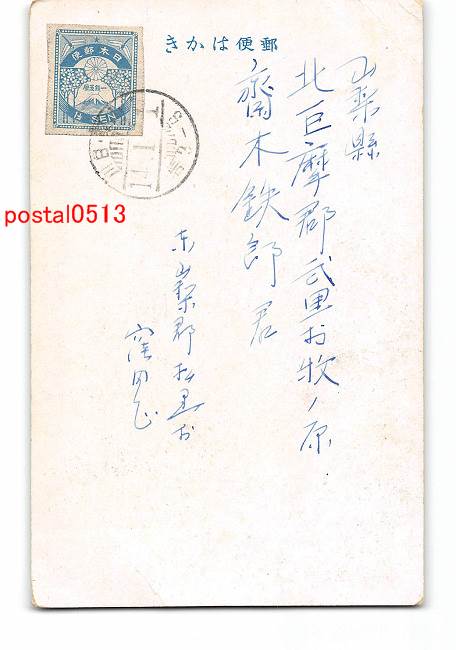 郵便はかき
日本郵便
一銭五厘
1½ SEN
山梨縣
北巨摩郡武里村牧ノ原
齋木鉄郎君
東山梨郡松里村
窪田
postal0513